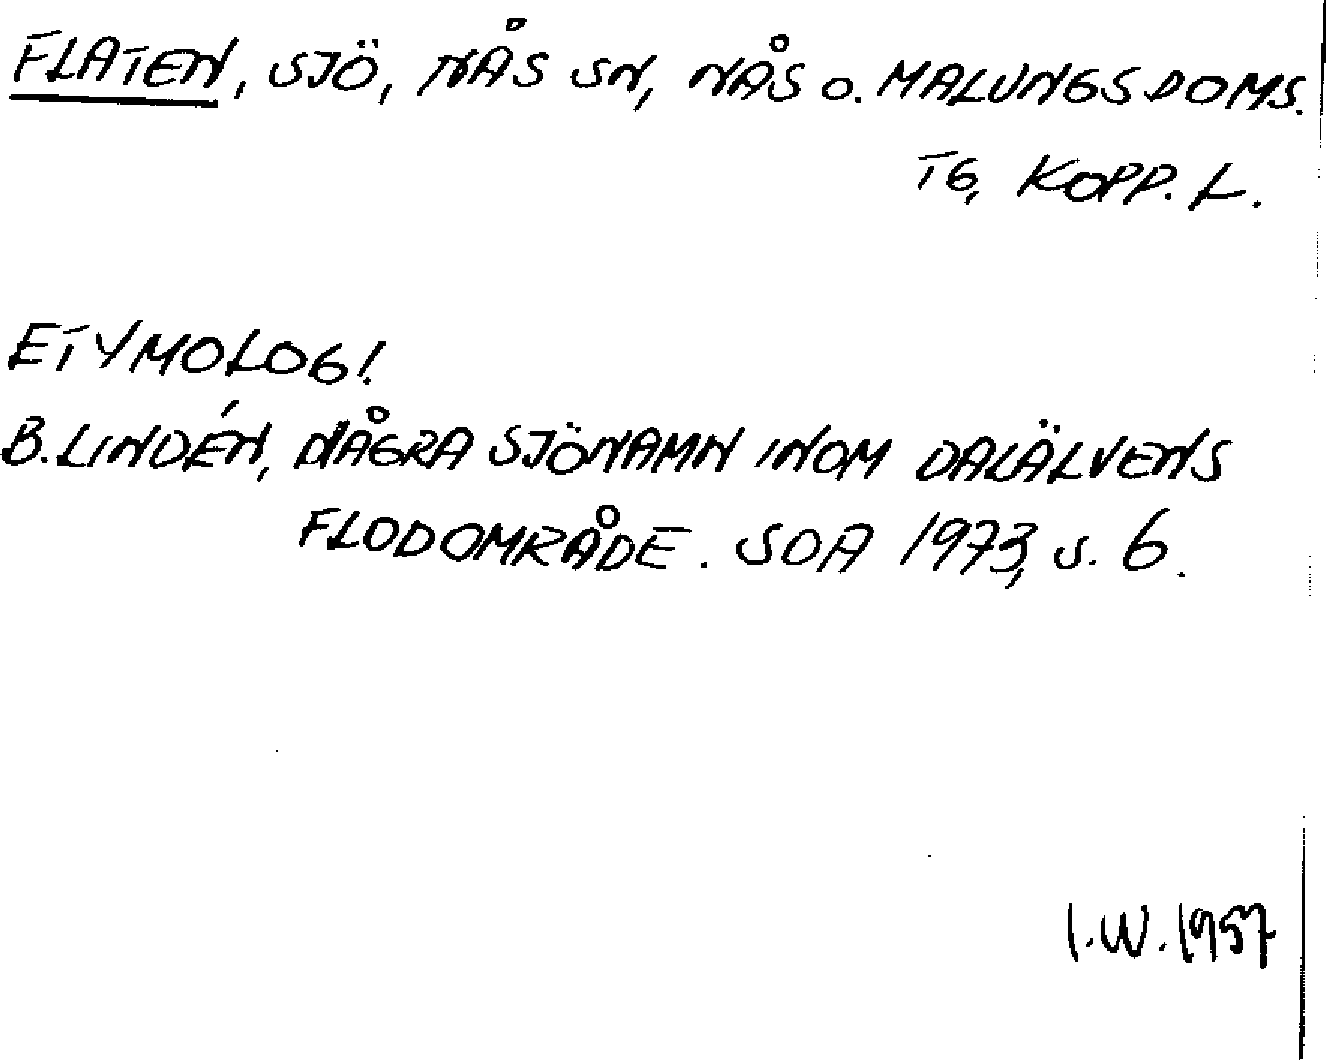 FLATEN, SJÖ, NÅS SN, NÅS o. MALUNGS DOMS.
TG, KOPP. L.
ETYMOLOGI.
B. LINDÉN, NÅGRA SJÖNAMN INOM DALÄLVENS
FLODOMRÅDE. SOA 1973, s. 6.
I.W. 1957